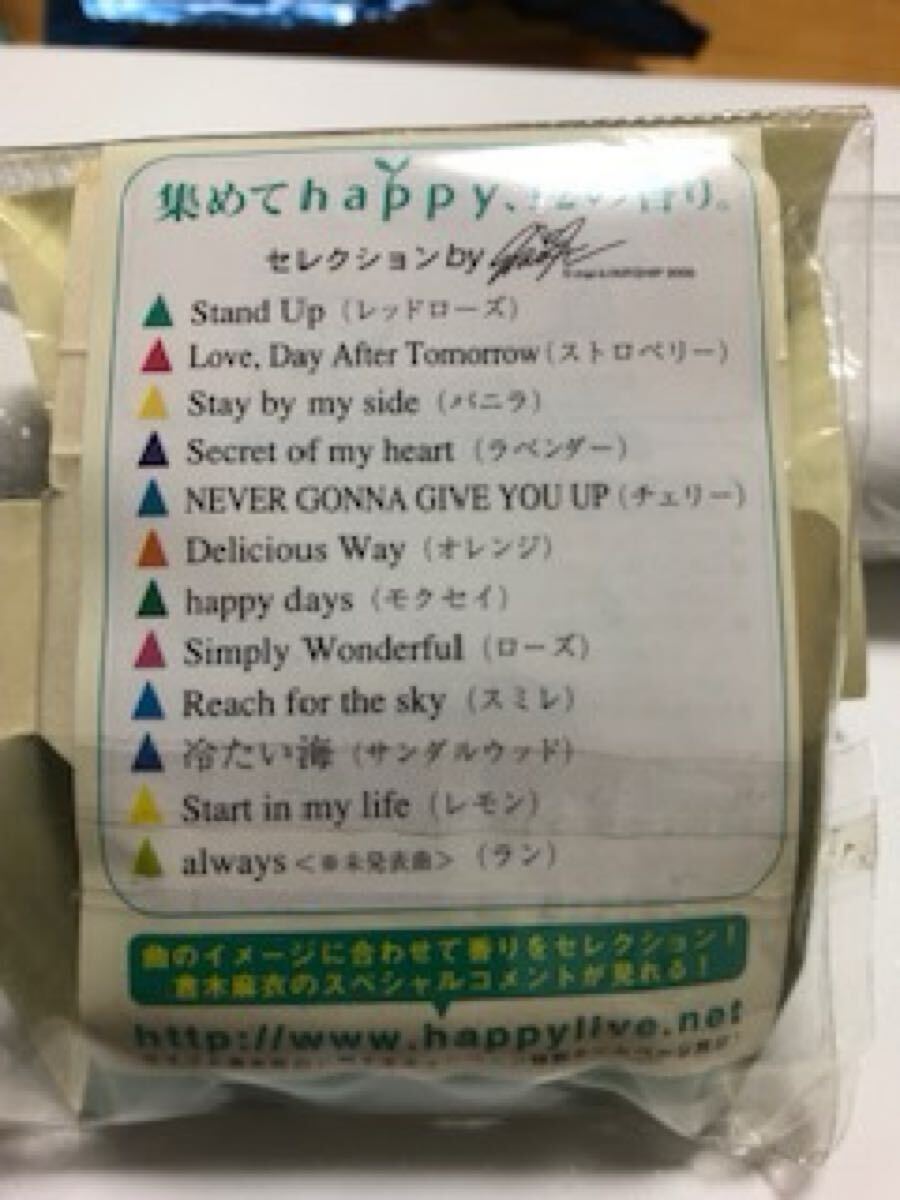 集めてhappy、12の香り。
セレクションby
Stand Up（レッドローズ）
Love, Day After Tomorrow（ストロベリー）
Stay by my side（バニラ）
Secret of my heart（ラベンダー）
NEVER GONNA GIVE YOU UP（チェリー）
Delicious Way（オレンジ）
happy days（モクセイ）
Simply Wonderful（ローズ）
Reach for the sky（スミレ）
冷たい海（サンダルウッド）
Start in my life（レモン）
always＜※未発表曲＞（ラン）
曲のイメージに合わせて香りをセレクション！
倉木麻衣のスペシャルコメントが見れる！
http://www.happylive.net